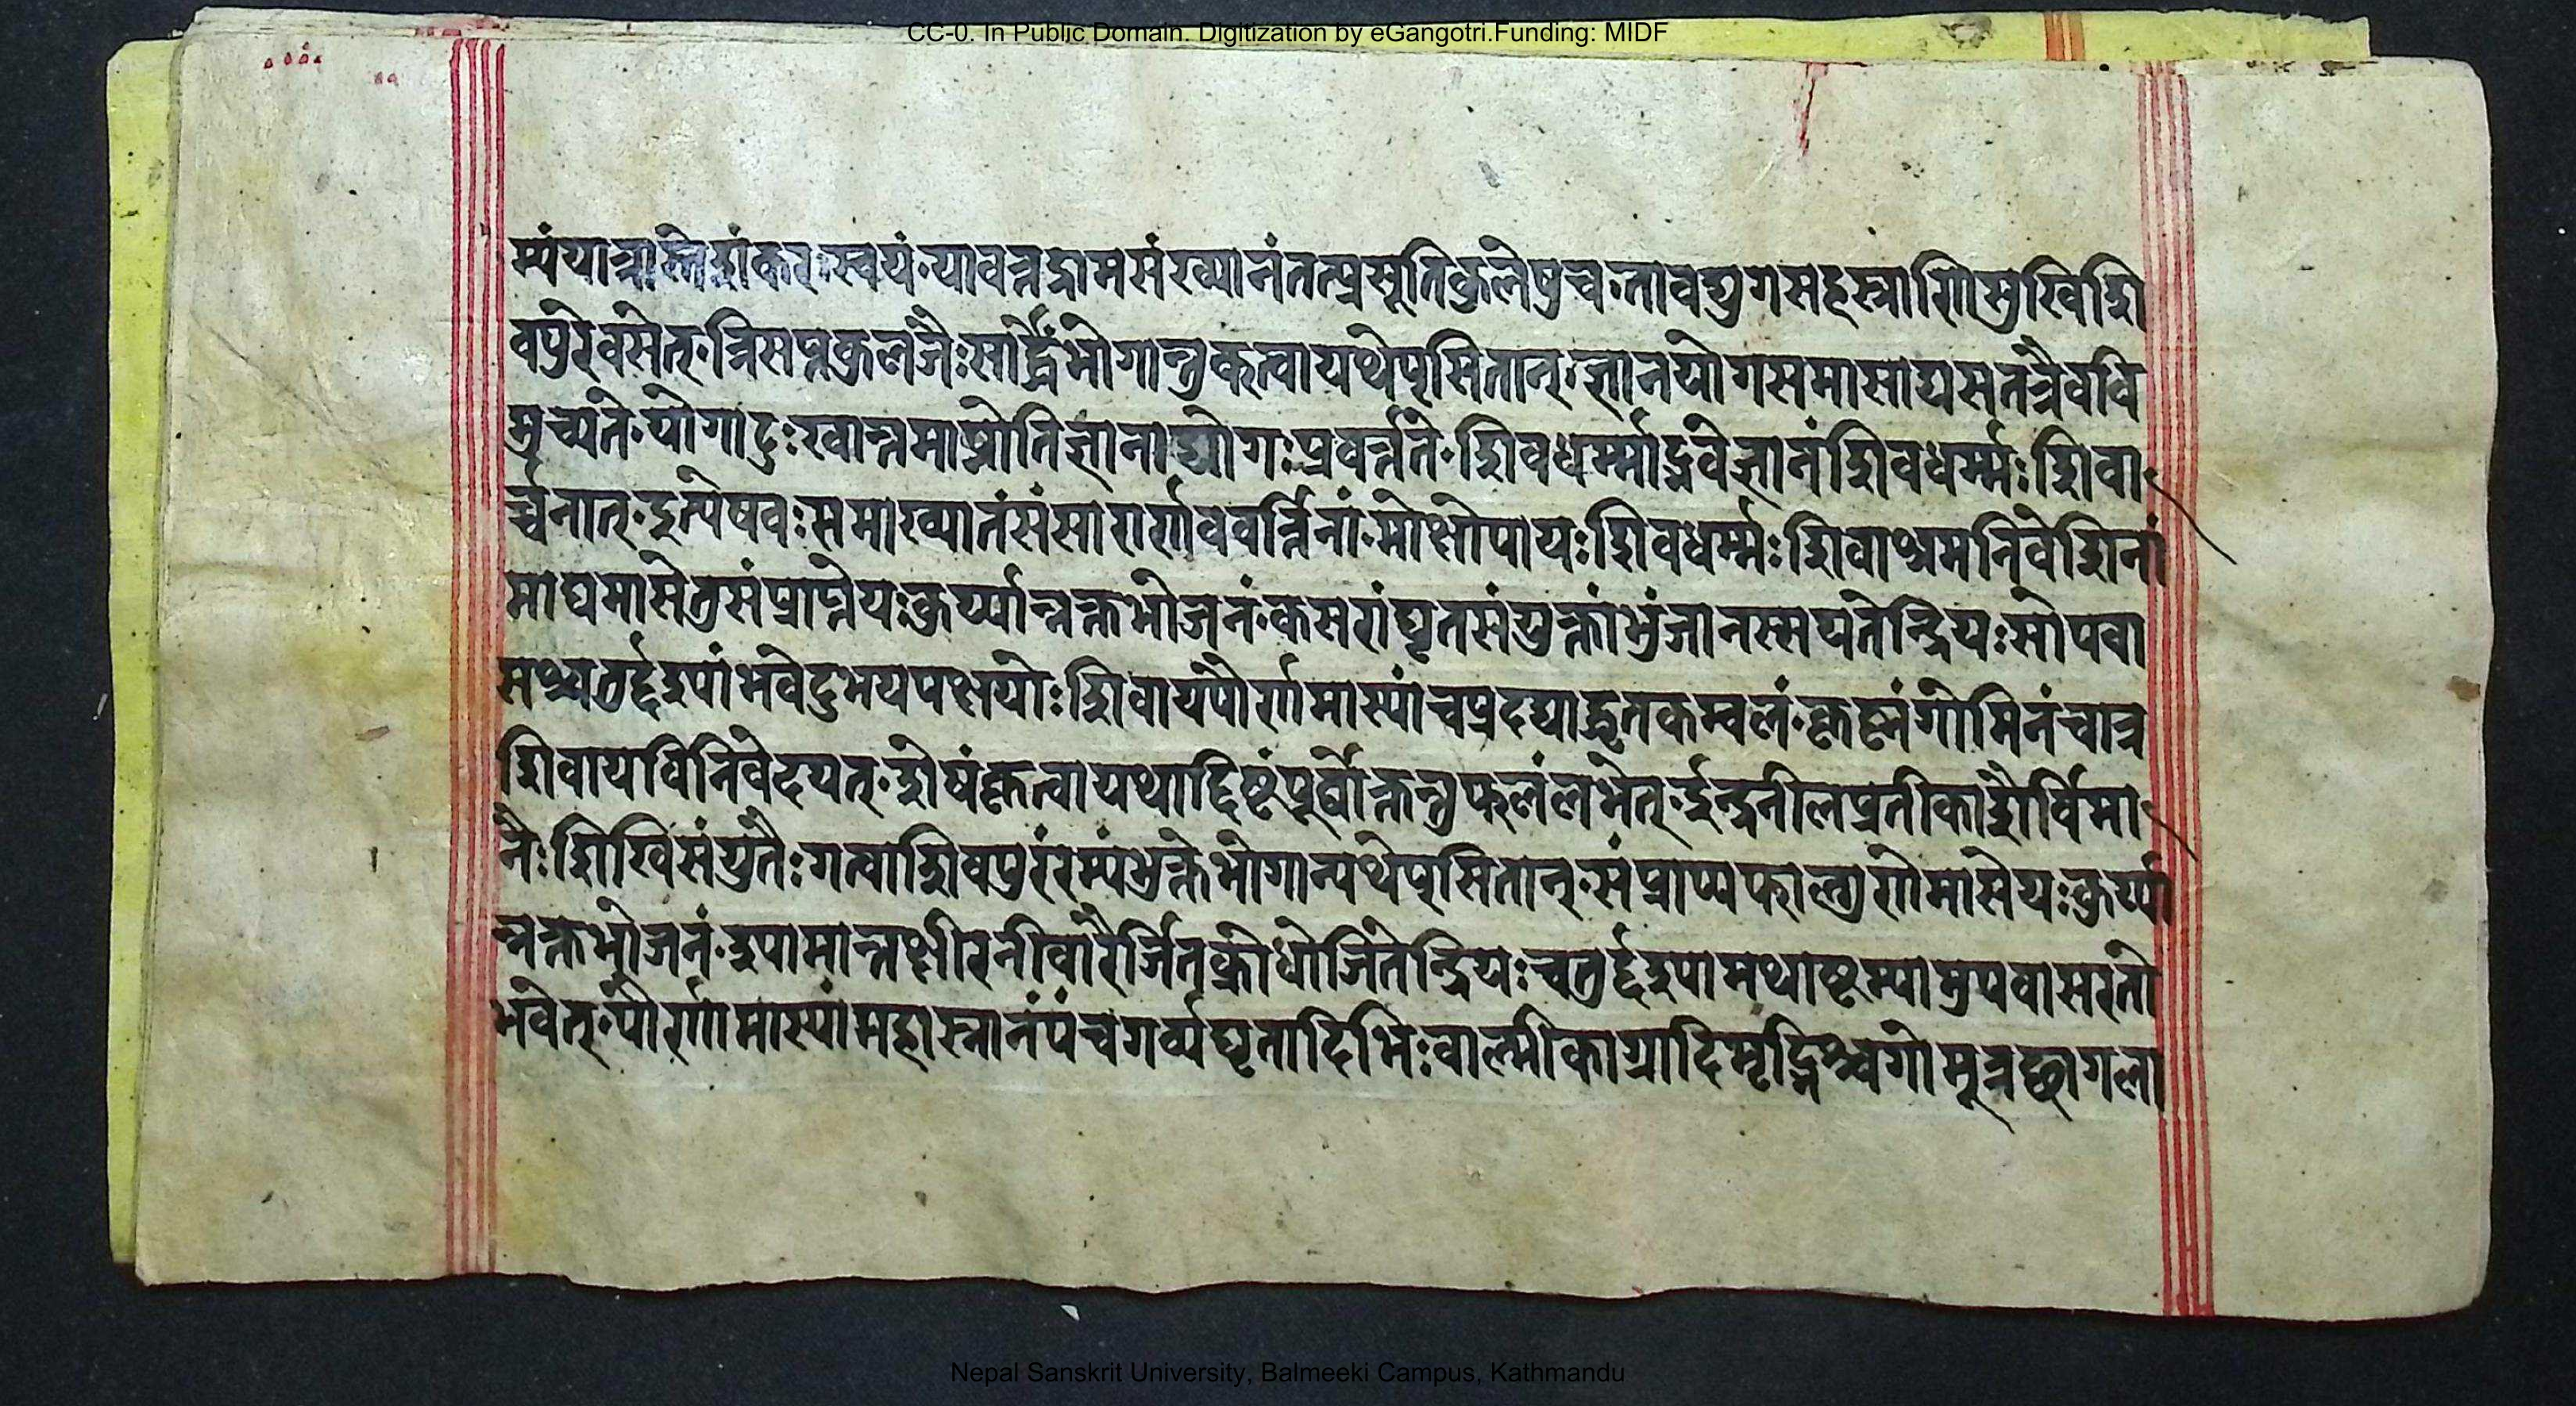 CC-0. In Public Domain. Digitization by eGangotri.Funding: MIDF
म्यंयात्रास्तेशंकरःस्वयं॰यावन्नद्रामसंख्यानंतत्प्रसूतिकुलेषुच॰तावद्युगसहस्राणिसुखिशि
वपुरेवसेत्॰त्रिसप्तकुलजैःसार्द्धंभोगान्तुकत्वायथेप्सितान्॰ज्ञानयोगसमासाद्यसतत्रैववि
मुच्यते॰योगादुःखान्तमाप्नोतिज्ञानाद्योगःप्रवर्त्तते॰शिवधर्म्माद्भवेज्ञानंशिवधर्म्मःशिवा
र्च्चनात्॰इत्येषवःसमाख्यातंसंसारार्णववर्त्तिनां॰मोक्षोपायःशिवधर्म्मःशिवाश्रमनिवेशिनां
माघमासेतुसंप्राप्तेयःकुर्य्यान्नक्तभोजनं॰कसरांघृतसंयुक्तांभुंजानस्सयतेन्द्रियःसोपवा
सश्चतुर्द्दश्यांभवेदुभयपक्षयोःशिवायपौर्णमास्यांचप्रदद्याद्घृतकम्वलं॰कृष्णंगोमिनंचात्र
शिवायविनिवेदयत्॰शेषंकृत्वायथादिष्टंपूर्व्वोक्तन्तुफलंलभेत्॰इन्द्रनीलप्रतीकाशैर्विमा
नैःशिखिसंयुतैःगत्वाशिवपुरंरम्यंभुक्तेभोगान्यथेप्सितान्॰संप्राप्यफाल्गुणेमासेयःकुर्य्या
न्नक्तभोजनं॰श्यामान्नक्षीरनीवारैर्जितक्रोधोजितेन्द्रियःचतुर्द्दश्यामथाष्टम्यामुपवासरतो
भवेत्॰पौर्णमास्यांमहास्नानंपंचगर्व्यघृतादिभिःवाल्मीकाग्रादिमृद्भिश्चगोमूत्रछागला
Nepal Sanskrit University, Balmeeki Campus, Kathmandu